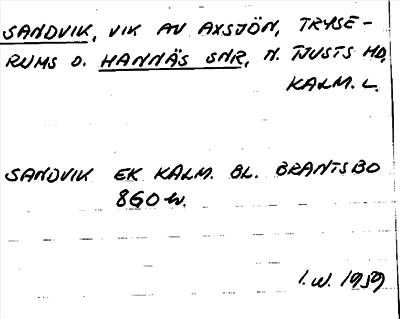 SANDVIK, VIK AV AXSJÖN, TRYSE-
RUMS O. HANNÄS SNR, N. TJUSTS HD,
KALM. L.
SANDVIK EK KALM. BL. BRANTSBO
860 W.
I.W. 1959